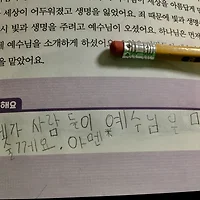 세상을 아름답게
세상이 어두워졌고 생명을 잃었어요. 죄 때문에 빛과 생명
시 빛과 생명을 주려고 예수님이 오셨어요. 하나님은 먼저
예수님을 소개하게 하셨어요
을 맡았어요.
해요
제가 사람들이 예수님을 미
줄게요. 아멘